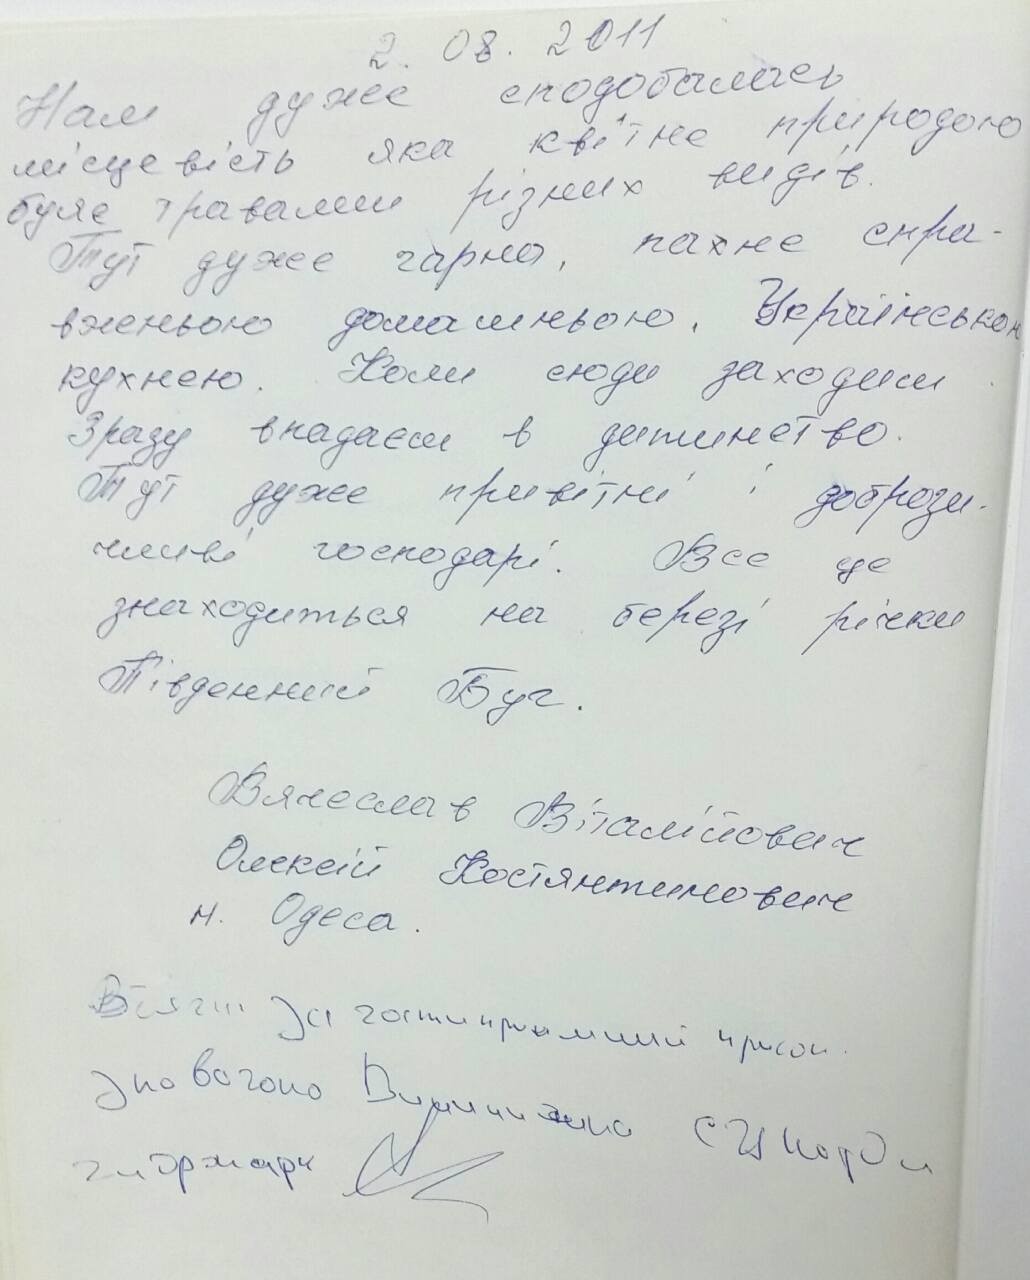 2. 08. 2011
Нам дуже сподобалась
місцевість яка квітне природою
буяє травами різних видів.
Тут дуже гарно, пахне спра-
вженьою домашньою, Українською
кухнею. Коли сюди заходиш
Зразу впадаєш в дитинство.
Тут дуже привітні і добрози-
чливі господарі. Все це
знаходиться на березі річки
Південний Буг.
Вячеслав Віталійович
Олексій Костянтинович
м. Одеса.
за гостиприимний